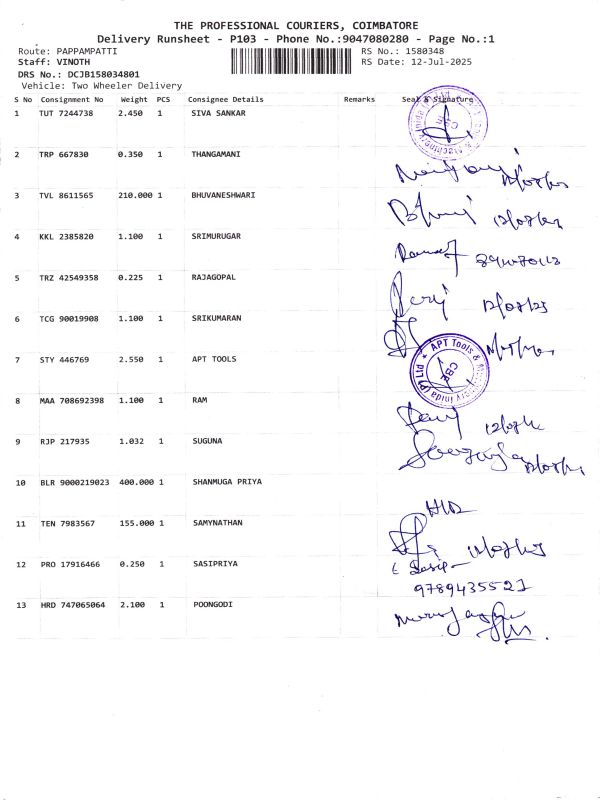 THE PROFESSIONAL COURIERS, COIMBATORE
Delivery Runsheet - P103 - Phone No.:9047080280 - Page No.:1
Route: PAPPAMPATTI RS No.: 1580348
Staff: VINOTH RS Date: 12-Jul-2025
DRS No.: DCJB158034801
Vehicle: Two Wheeler Delivery
S No Consignment No Weight PCS Consignee Details Remarks Seal & Signature
1 TUT 7244738 2.450 1 SIVA SANKAR
2 TRP 667830 0.350 1 THANGAMANI
3 TVL 8611565 210.000 1 BHUVANESHWARI
4 KKL 2385820 1.100 1 SRIMURUGAR
5 TRZ 42549358 0.225 1 RAJAGOPAL
6 TCG 90019908 1.100 1 SRIKUMARAN
7 STY 446769 2.550 1 APT TOOLS
APT Tools & Machinery Inida (P) Ltd
CBE
8 MAA 708692398 1.100 1 RAM
9 RJP 217935 1.032 1 SUGUNA
10 BLR 9000219023 400.000 1 SHANMUGA PRIYA
11 TEN 7983567 155.000 1 SAMYNATHAN
12 PRO 17916466 0.250 1 SASIPRIYA
9789435521
13 HRD 747065064 2.100 1 POONGODI